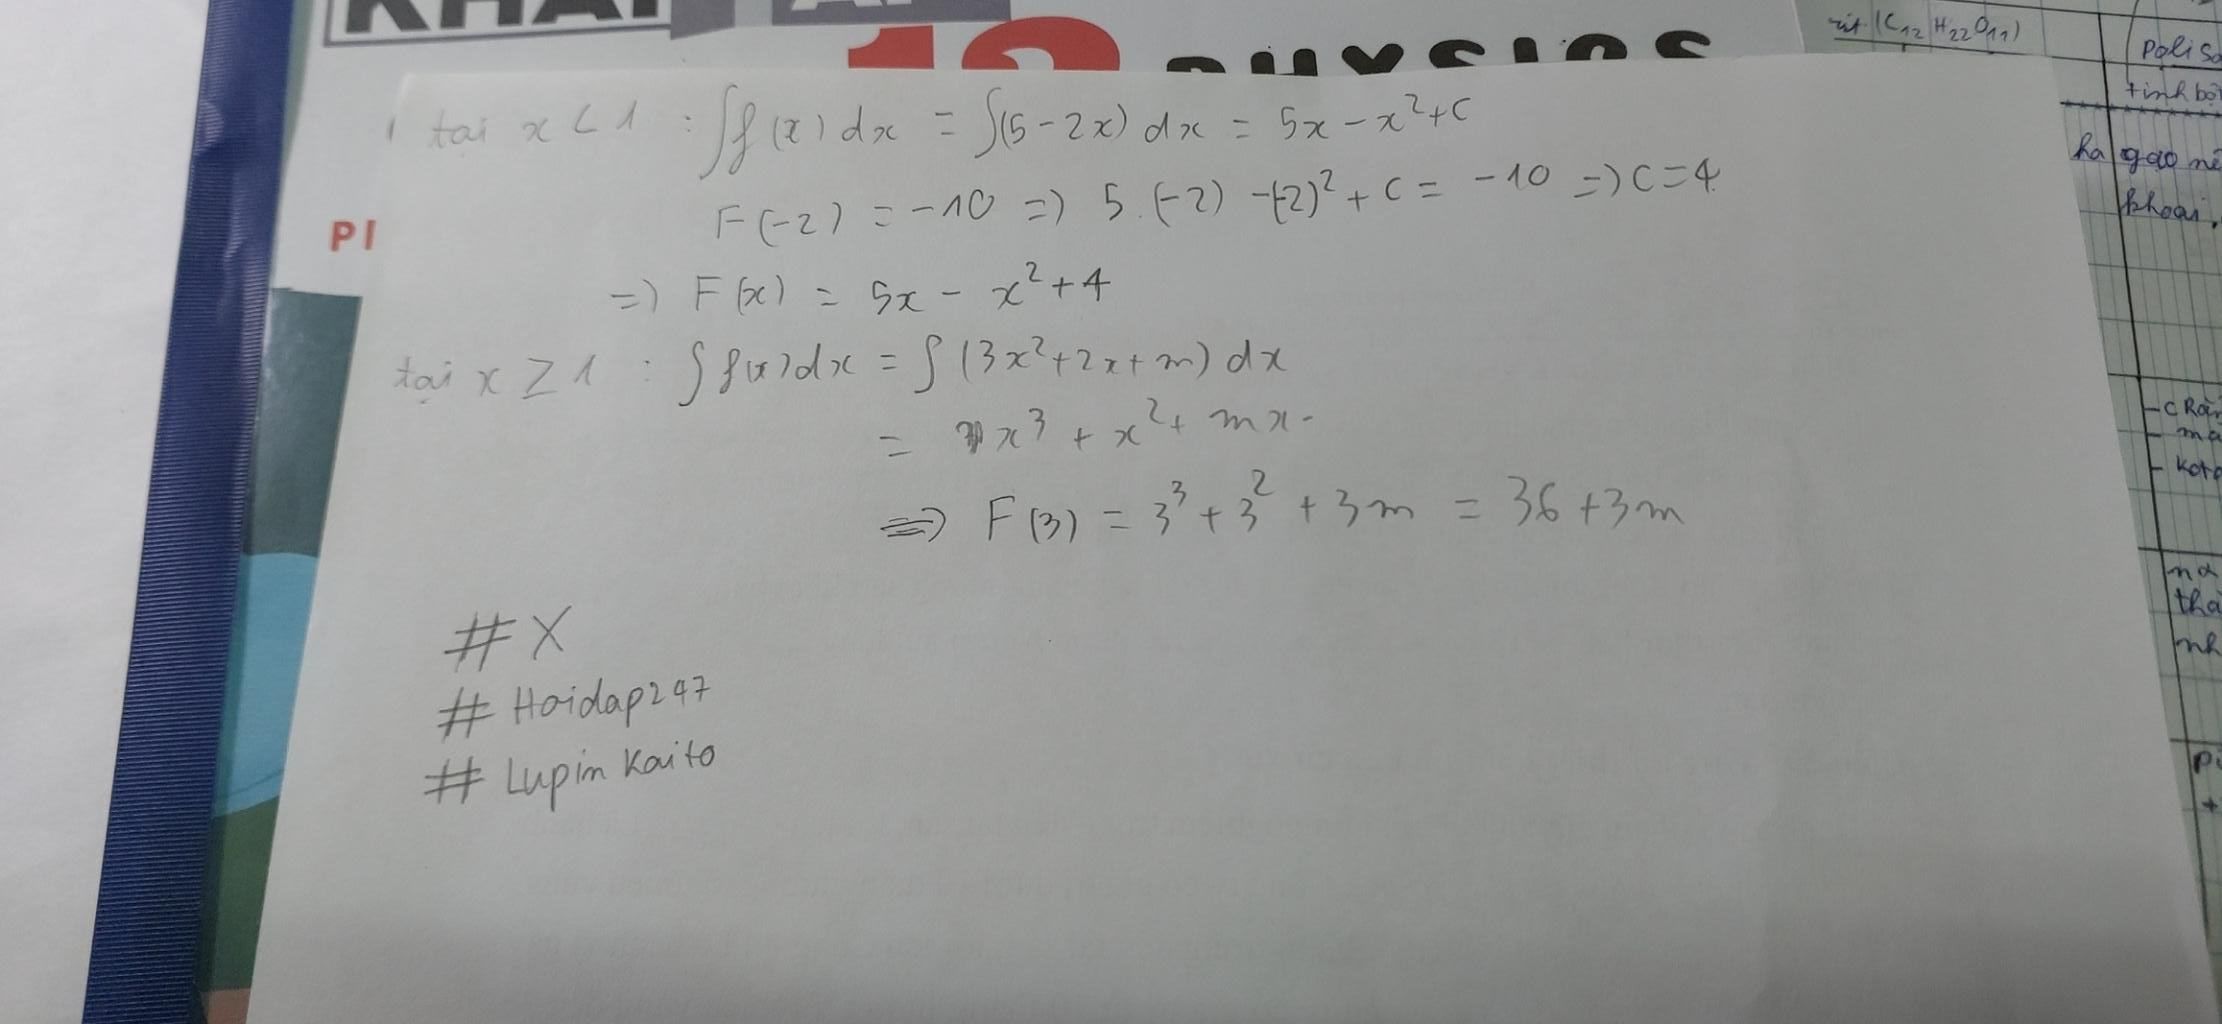 PHYSICS
PI
tại x < 1 : ∫f(x)dx = ∫(5-2x)dx = 5x - x²+C
F(-2) = -10 => 5.(-2) -(-2)² + C = -10 => C=4
=> F(x) = 5x - x²+4
tại x ≥ 1 : ∫f(x)dx = ∫(3x²+2x+m)dx
= x³ + x²+ mx
=> F(3) = 3³+3² +3m = 36+3m
#X
#Hoidap247
#Lupin Kaito
rit (C₁₂H₂₂O₁₁)
tinh bộ
gạo
khoai,